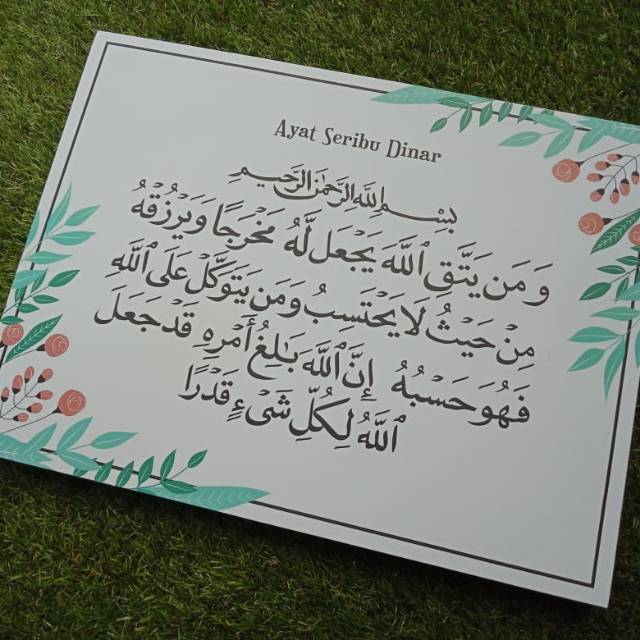 Ayat Seribu Dinar
بِسْمِ اللَّهِ الرَّحْمَٰنِ الرَّحِيمِ
وَمَن يَتَّقِ ٱللَّهَ يَجْعَل لَّهُۥ مَخْرَجًا وَيَرْزُقْهُ
مِنْ حَيْثُ لَا يَحْتَسِبُ وَمَن يَتَوَكَّلْ عَلَى ٱللَّهِ
فَهُوَ حَسْبُهُۥٓ إِنَّ ٱللَّهَ بَٰلِغُ أَمْرِهِۦ قَدْ جَعَلَ
ٱللَّهُ لِكُلِّ شَىْءٍ قَدْرًا